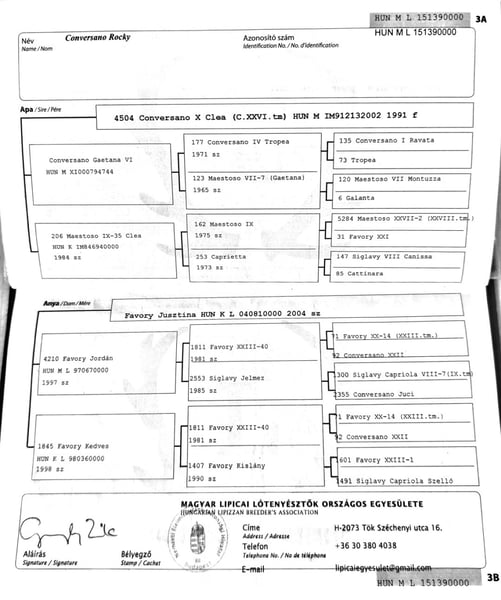 HUN M L 151390000
3A
HUN M L 151390000
Név
Name / Nom
Conversano Rocky
Azonosító szám
Identification No. / No. d'identification
Apa / Sire / Père
4504 Conversano X Clea (C.XXVI.tm) HUN M IM912132002 1991 f
Conversano Gaetana VI
HUN M XI000794744
177 Conversano IV Tropea
1971 sz
135 Conversano I Ravata
73 Tropea
123 Maestoso VII-7 (Gaetana)
1965 sz
120 Maestoso VII Montuzza
6 Galanta
206 Maestoso IX-35 Clea
HUN K IM846940000
1984 sz
162 Maestoso IX
1975 sz
5284 Maestoso XXVII-2 (XXVIII.tm.)
31 Favory XXI
253 Caprietta
1973 sz
147 Siglavy VIII Canissa
85 Cattinara
Anya / Dam / Mère
Favory Jusztina HUN K L 040810000 2004 sz
4210 Favory Jordán
HUN M L 970670000
1997 sz
1811 Favory XXIII-40
1981 sz
71 Favory XX-14 (XXIII.tm.)
92 Conversano XXII
2553 Siglavy Jelmez
1985 sz
300 Siglavy Capriola VIII-7(IX.tm)
2355 Conversano Juci
1845 Favory Kedves
HUN K L 980360000
1998 sz
1811 Favory XXIII-40
1981 sz
71 Favory XX-14 (XXIII.tm.)
92 Conversano XXII
1407 Favory Kislány
1990 sz
1601 Favory XXIII-1
1491 Siglavy Capriola Szellő
MAGYAR LIPICAI LÓTENYÉSZTŐK ORSZÁGOS EGYESÜLETE
HUNGARIAN LIPIZZAN BREEDER'S ASSOCIATION
Címe
Address / Adresse
H-2073 Tök Széchenyi utca 16.
Telefon
Telephone No. / No de téléphone
+36 30 380 4038
E-mail
lipicaiegyesulet@gmail.com
Aláírás
Signature / Signature
Bélyegző
Stamp / Cachet
HUN M L 151390000
3B